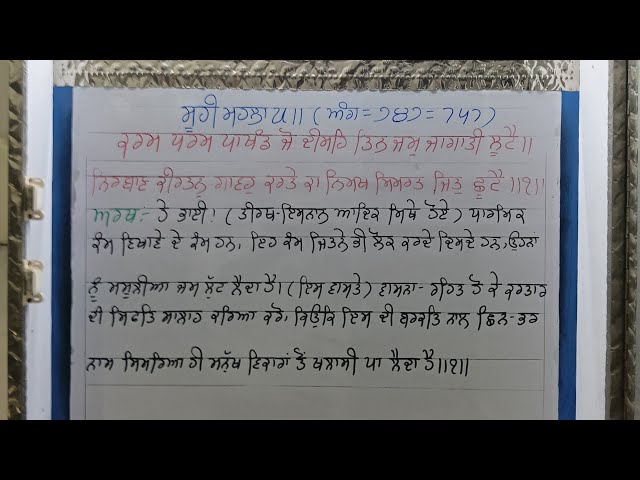 ਸੂਹੀ ਮਹਲਾ ੫॥ (ਅੰਗ=੭੪੭=747)
ਕਰਮ ਧਰਮ ਪਾਖੰਡ ਜੋ ਦੀਸਹਿ ਤਿਨ ਜਮੁ ਜਾਗਾਤੀ ਲੂਟੈ॥
ਨਿਰਬਾਣ ਕੀਰਤਨੁ ਗਾਵਹੁ ਕਰਤੇ ਕਾ ਨਿਮਖ ਸਿਮਰਤ ਜਿਤੁ ਛੂਟੈ॥੧॥
ਅਰਥ:- ਹੇ ਭਾਈ! (ਤੀਰਥ-ਇਸਨਾਨ ਆਦਿਕ ਮਿਥੇ ਹੋਏ) ਧਾਰਮਿਕ
ਕੰਮ ਵਿਖਾਵੇ ਦੇ ਕੰਮ ਹਨ, ਇਹ ਕੰਮ ਜਿਤਨੇ ਭੀ ਲੋਕ ਕਰਦੇ ਦਿਸਦੇ ਹਨ, ਉਹਨਾਂ
ਨੂੰ ਮਸੂਲੀਆ ਜਮ ਲੁੱਟ ਲੈਂਦਾ ਹੈ। (ਇਸ ਵਾਸਤੇ) ਵਾਸਨਾ-ਰਹਿਤ ਹੋ ਕੇ ਕਰਤਾਰ
ਦੀ ਸਿਫਤਿ ਸਾਲਾਹ ਕਰਿਆ ਕਰੋ, ਕਿਉਂਕਿ ਇਸ ਦੀ ਬਰਕਤਿ ਨਾਲ ਛਿਨ-ਭਰ
ਨਾਮ ਸਿਮਰਿਆ ਹੀ ਮਨੁੱਖ ਵਿਕਾਰਾਂ ਤੋਂ ਖਲਾਸੀ ਪਾ ਲੈਂਦਾ ਹੈ॥੧॥